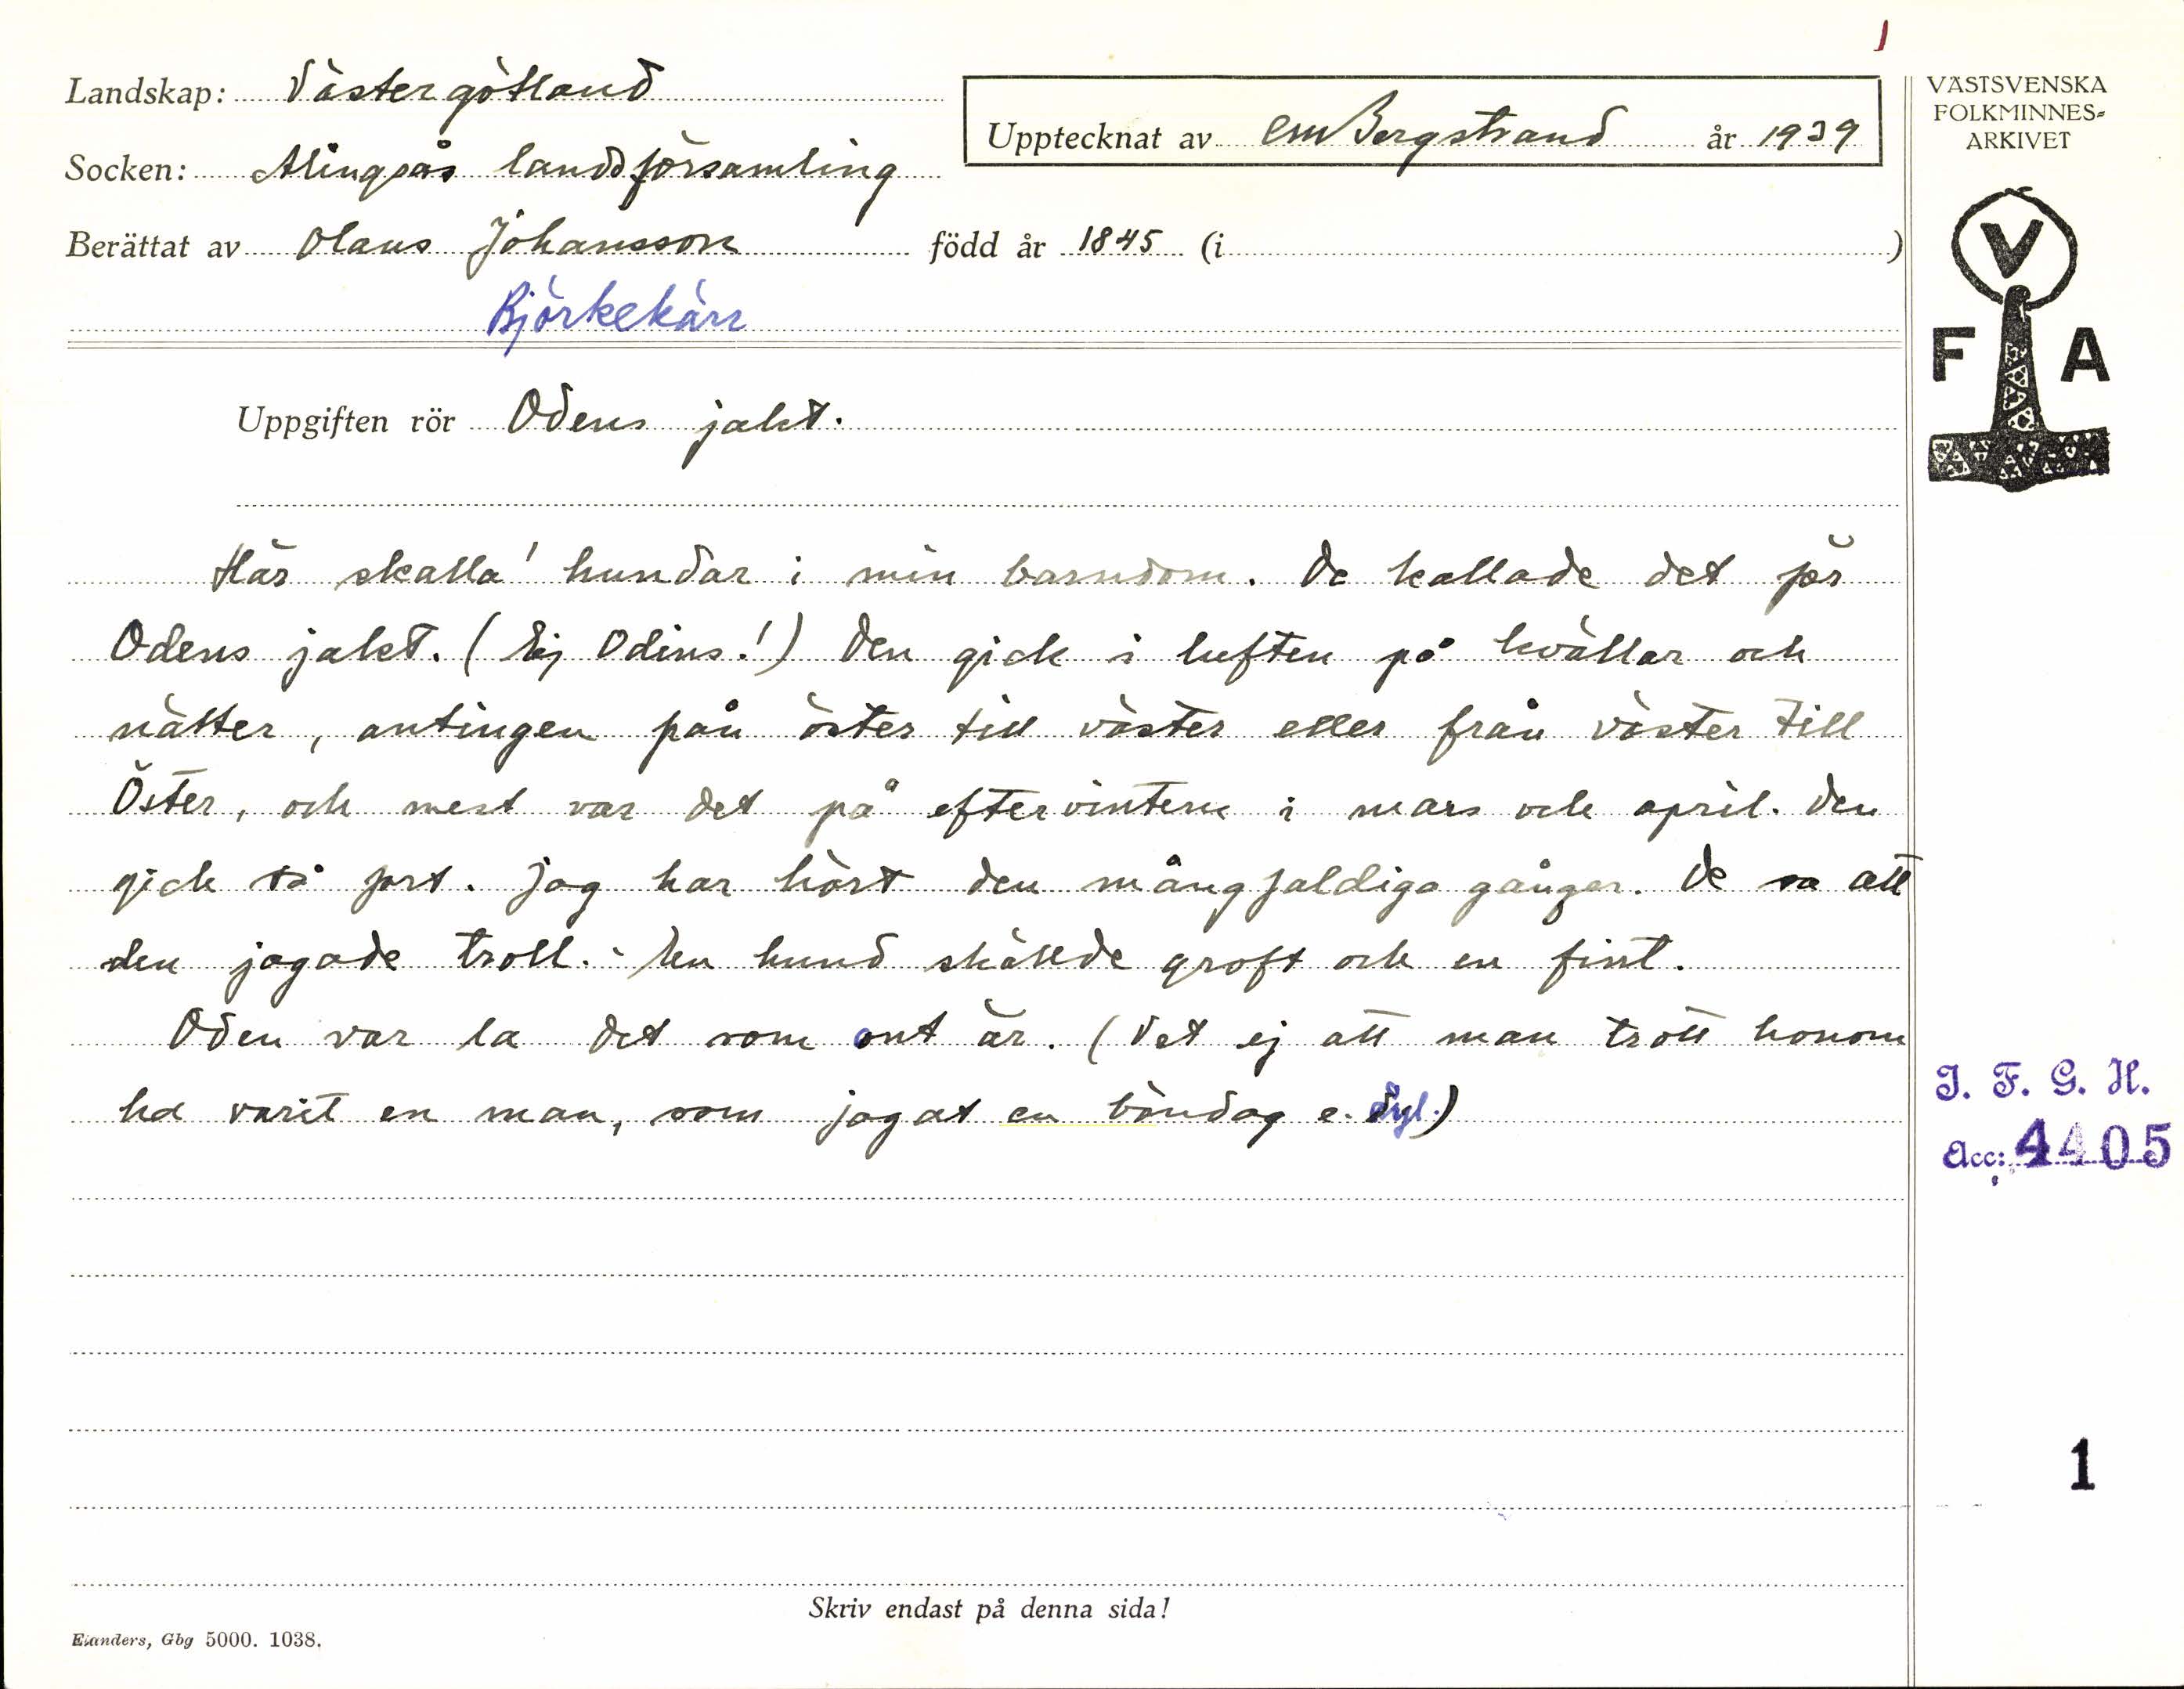 1
Landskap: Västergötland
VÄSTSVENSKA
FOLKMINNES=
ARKIVET
Upptecknat av CM Bergstrand år 1939
Socken: Alingsås landsförsamling
Berättat av Olaus Johansson född år 1845 (i )
Björkekärr
V
F A
Uppgiften rör Odens jakt.
Här skalla' hundar i min barndom. De kallade det för
Odens jakt. (Ej Odins!) Den gick i luften på kvällar och
nätter, antingen från öster till väster eller från väster till
Öster, och mest var det på eftervintern i mars och april. Den
gick så fort. Jag har hört den mångfaldiga gånger. De sa att
den jagade troll. En hund skällde groft och en fint.
Oden var la det som ont är. (Vet ej att man trott honom
ha varit en man, som jagat en böndag e. dyl.)
I. F. G. H.
Acc: 4405
1
Skriv endast på denna sida!
Elanders, Gbg 5000. 1038.